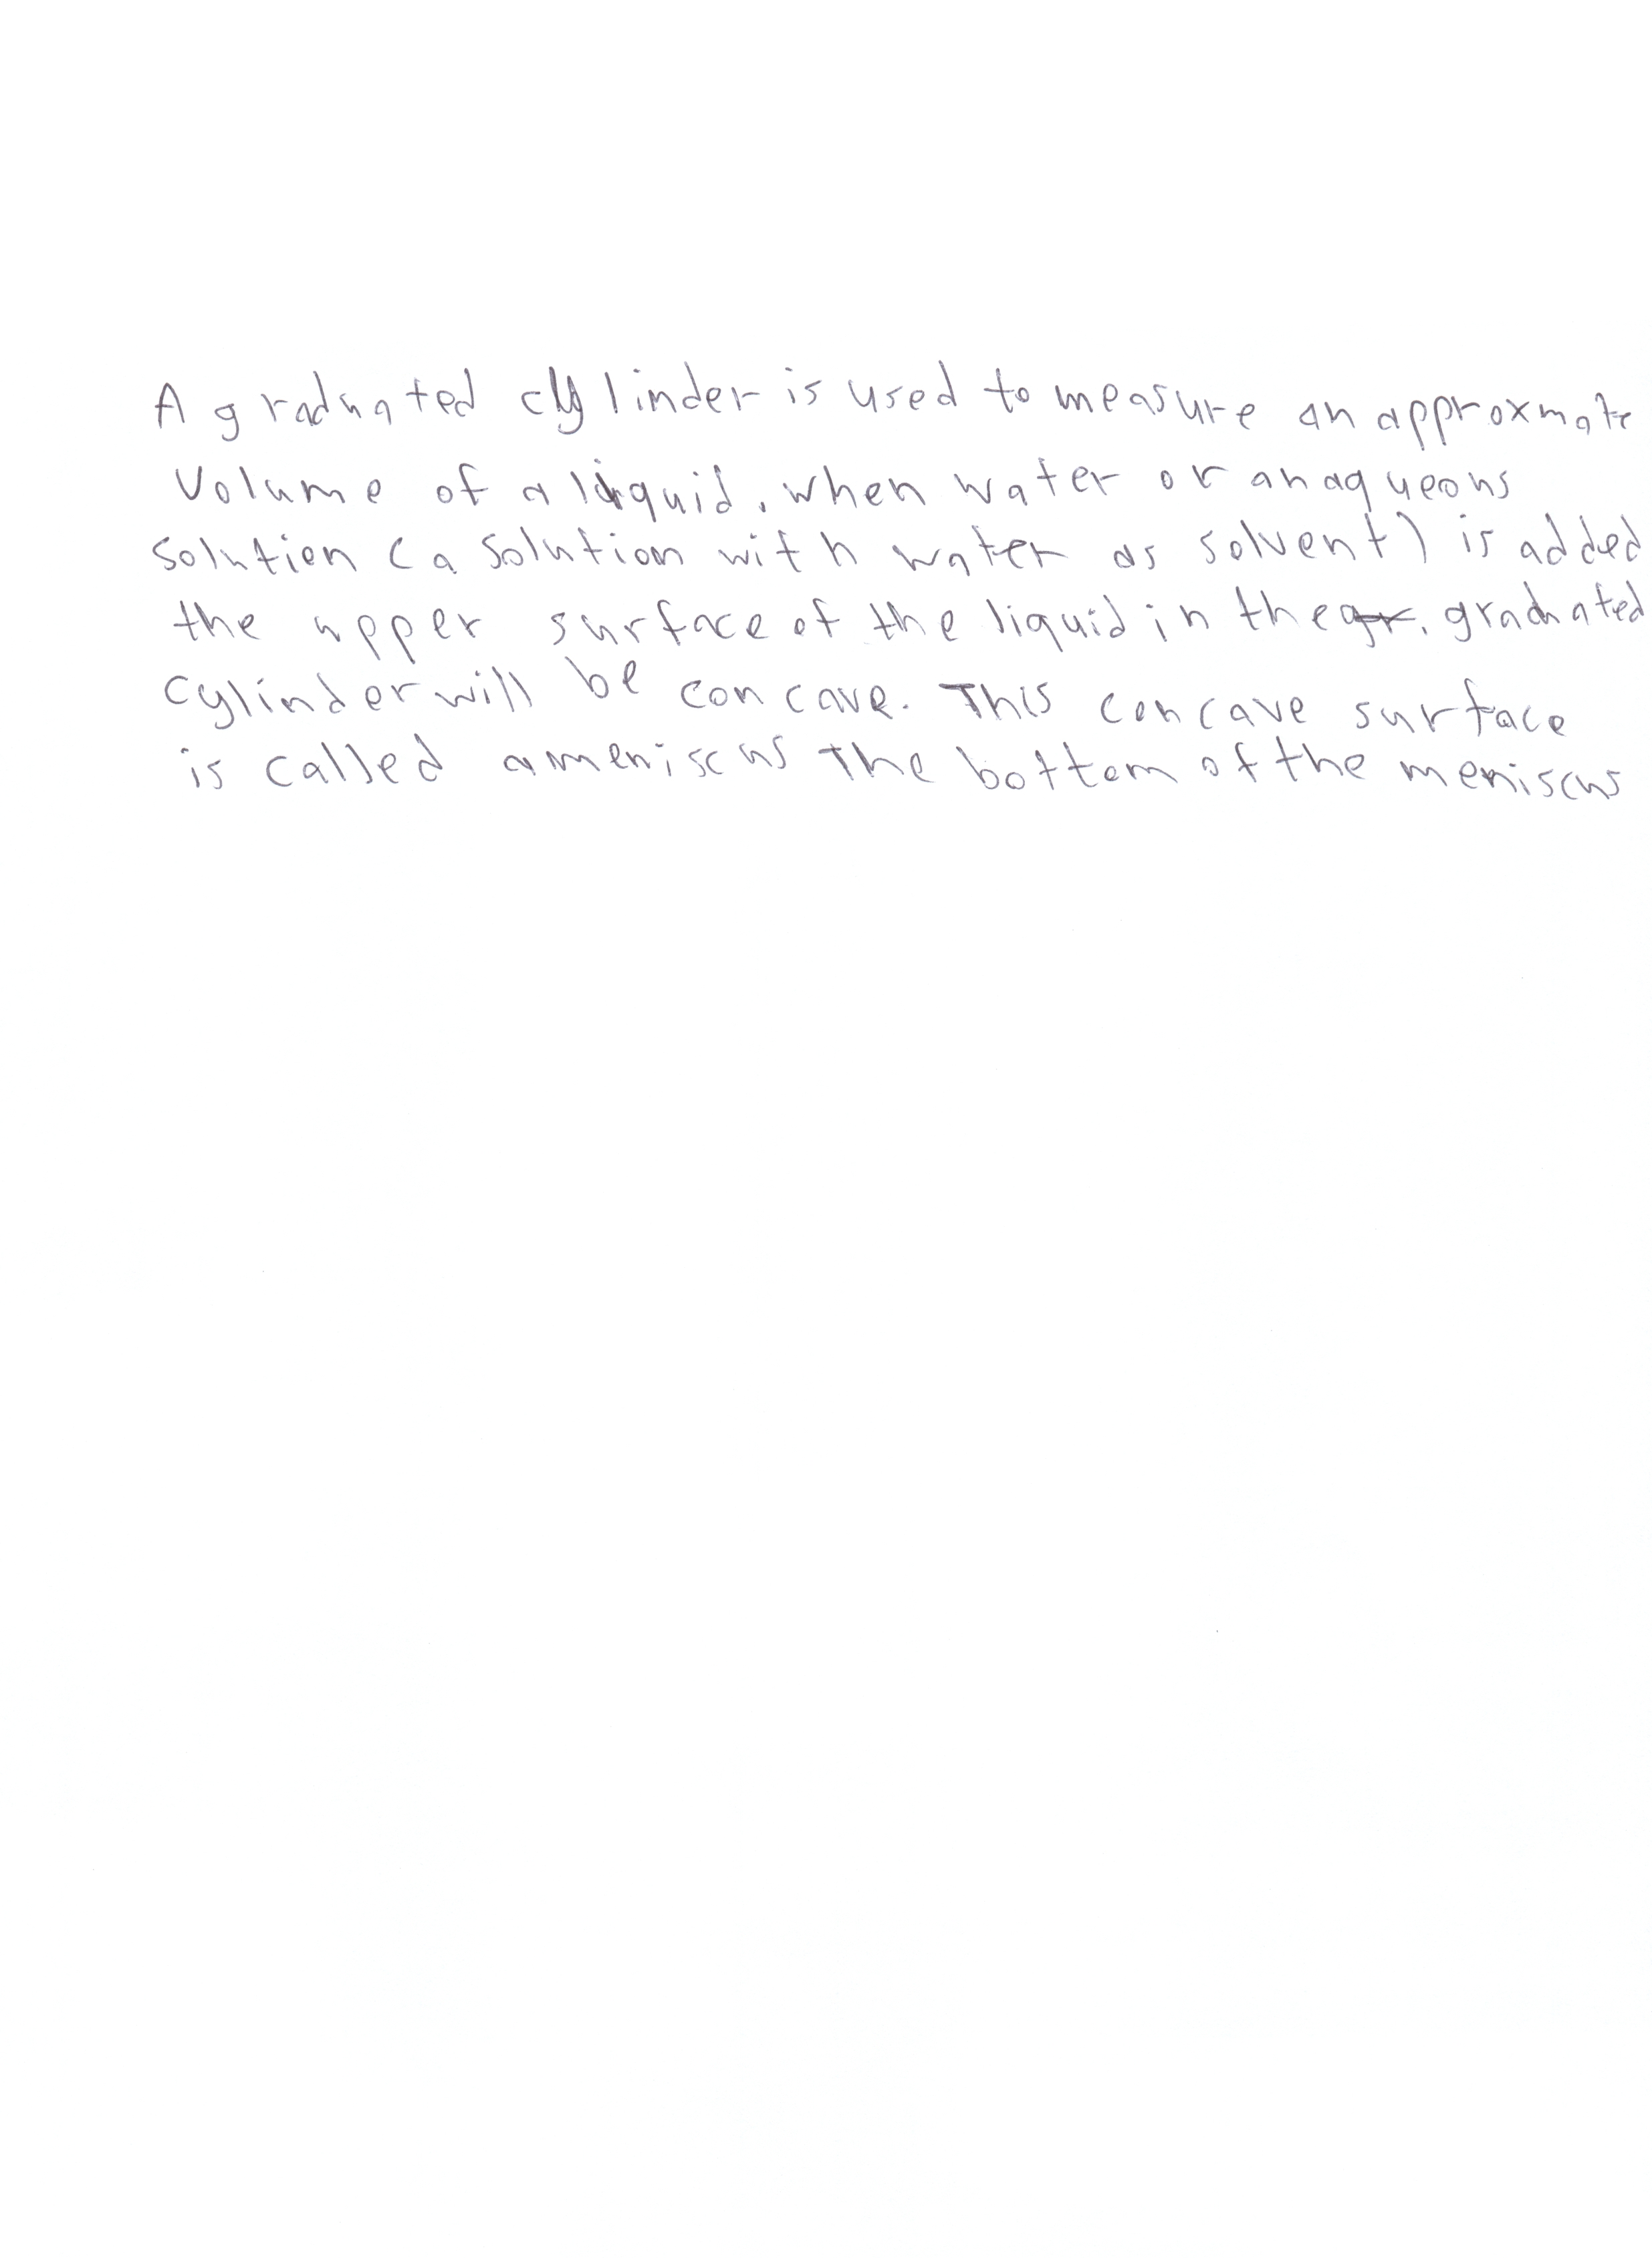 A graduated cylinder is used to measure an approxmate
Volume of a liquid. when water or an aqueous
solution (a solution with water as solvent) is added
the upper surface of the liquid in the graduated
cylinder will be concave. This concave surface
is called a meniscus The bottom of the meniscus